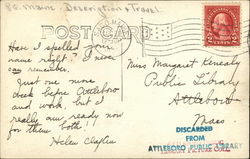 86. Maine - Description & Travel.
POST CARD
Have I spelled your
name right? I never
can remember.
Just one more
week before Attleboro
and work, but I
really am ready now
for them both!
Helen Claflin
Miss Margaret Kenealy
Public Library
Attleboro
Mass.
DISCARDED
FROM
ATTLEBORO PUBLIC LIBRARY